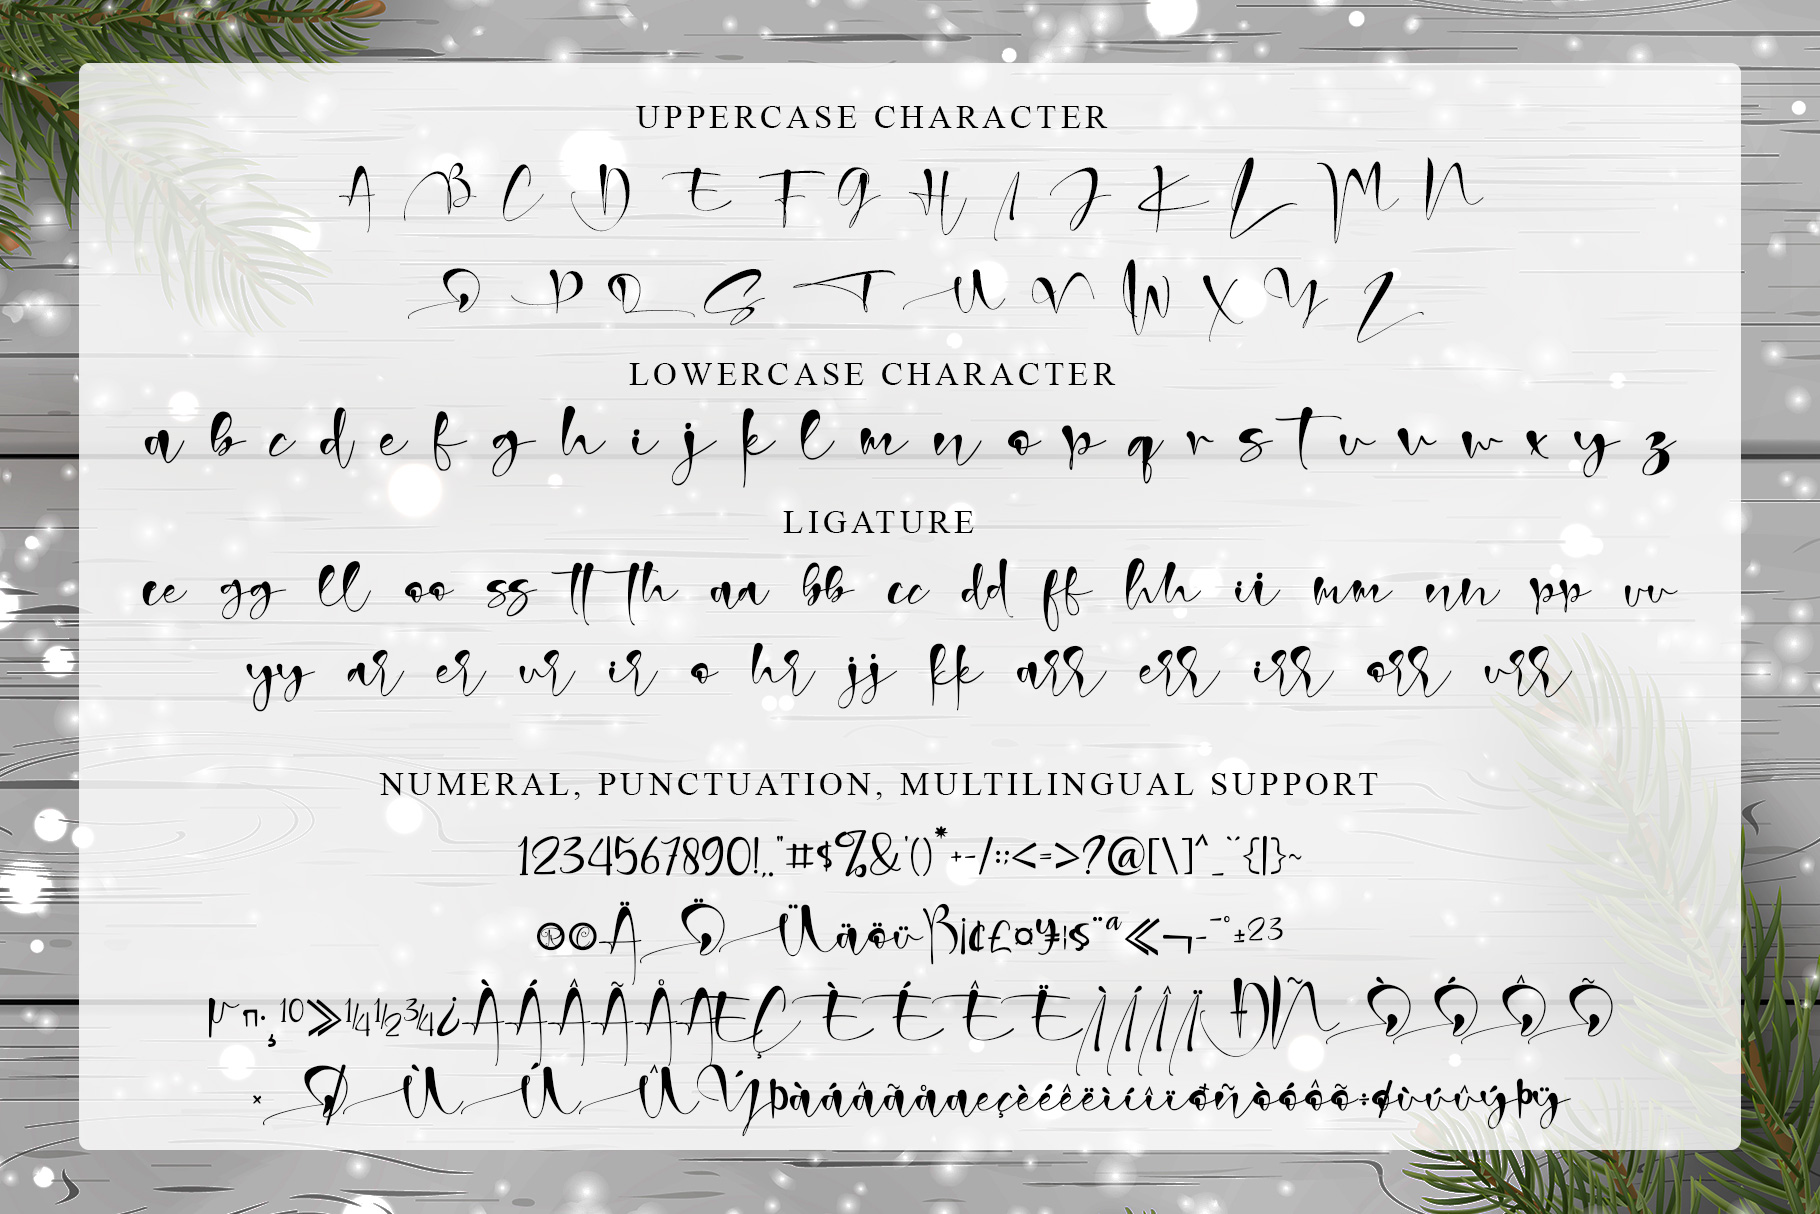 UPPERCASE CHARACTER
A B C D E F G H I J K L M N
O P Q S T U V W X Y Z
LOWERCASE CHARACTER
a b c d e f g h i j k l m n o p q r s t u v w x y z
LIGATURE
ee gg ll oo ss tt th aa bb cc dd ff hh ii mm nn pp uu
yy ar er ur ir o hr jj kk arr err irr orr urr
NUMERAL, PUNCTUATION, MULTILINGUAL SUPPORT
1234567890!,."#$%&'()*+-/:;<=>?@[\]^_`¨{|}~
®©Ä Ö Üäöüß¡¢£¤¥¦§¨ª«¬-¯°±23
µ¶·¸10»¼½¾¿ÀÁÂÃÅÆÇÈÉÊËÌÍÎÏÐÑÒÓÔÕ
×ØÙÚÛÝÞàáâãåæçèéêëìíîïðñòóôõ÷øùúûýþÿ